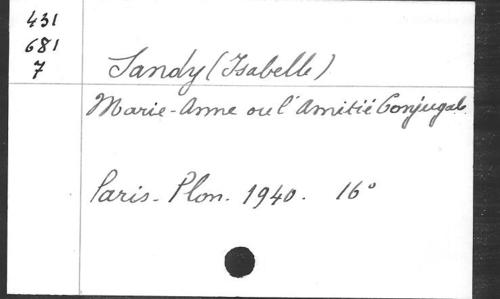 431
681
7
Sandy (Isabelle)
Marie-Anne ou l'Amitié Conjugale
Paris - Plon. 1940. 16°